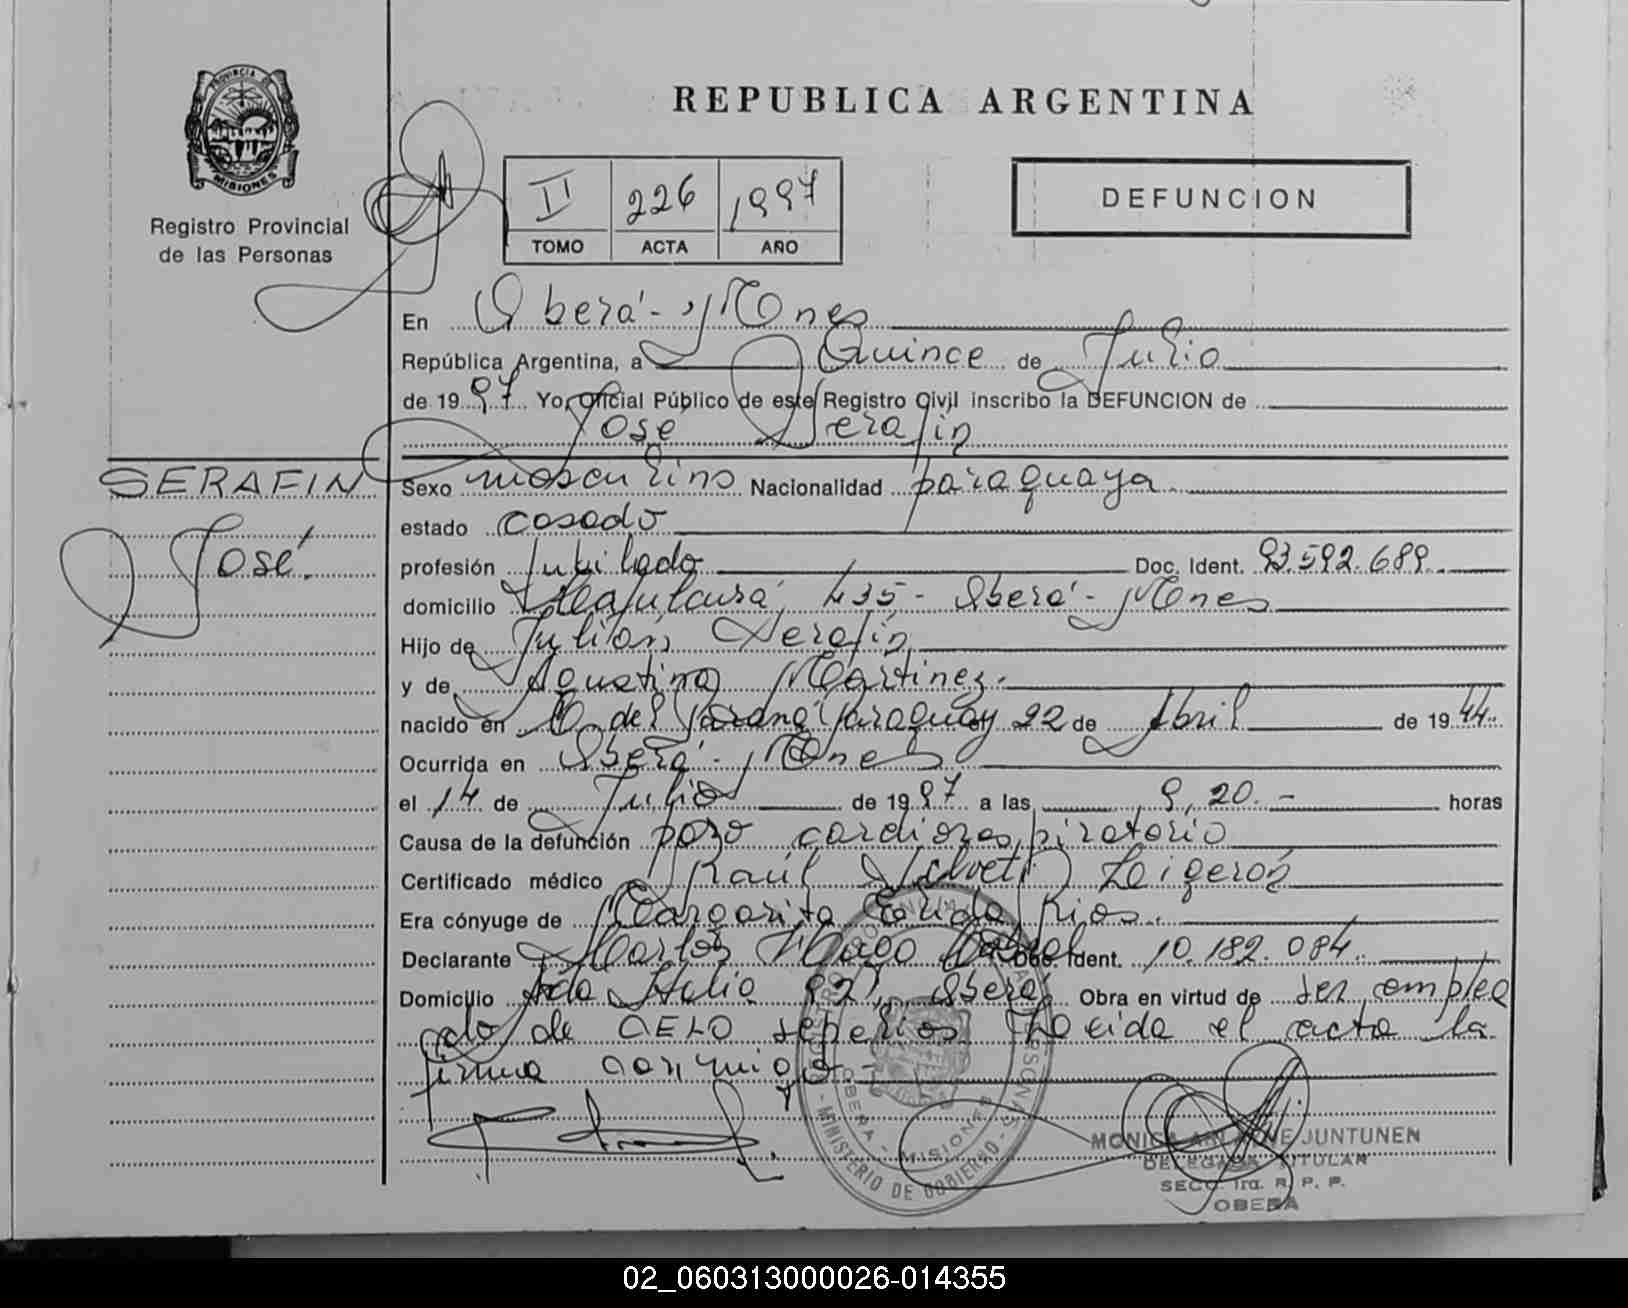 PROVINCIA DE
MISIONES
Registro Provincial
de las Personas
REPUBLICA ARGENTINA
II 226 1997
TOMO ACTA AÑO
DEFUNCION
En Oberá - Mnes
República Argentina, a Quince de Julio
de 1997 Yo, Oficial Público de este Registro Civil inscribo la DEFUNCION de
José Serafin
SERAFIN
José.
Sexo masculino Nacionalidad paraguaya
estado casado
profesión Jubilado Doc. Ident. 93.592.689
domicilio 435 - Oberá - Mnes
Hijo de Julián Serafin
y de Agustina Martinez.
nacido en del Paraná Paraguay 22 de Abril de 1944
Ocurrida en Oberá - Mnes
el 14 de Julio de 1997 a las 9,20.- horas
Causa de la defunción paro cardiorespiratorio
Certificado médico Raúl
Era cónyuge de Margarita Rios.
Declarante Carlos Doc. Ident. 10.182.084.
Domicilio Oberá Obra en virtud de ser emplea
do de CELO sepelios Leida el acta la
firma conmigo.-
OBERA - MISIONES
MINISTERIO DE GOBIERNO
MONICA JUNTUNEN
DELEGADA TITULAR
SECC. 1ra. R. P. P.
OBERA
02_060313000026-014355